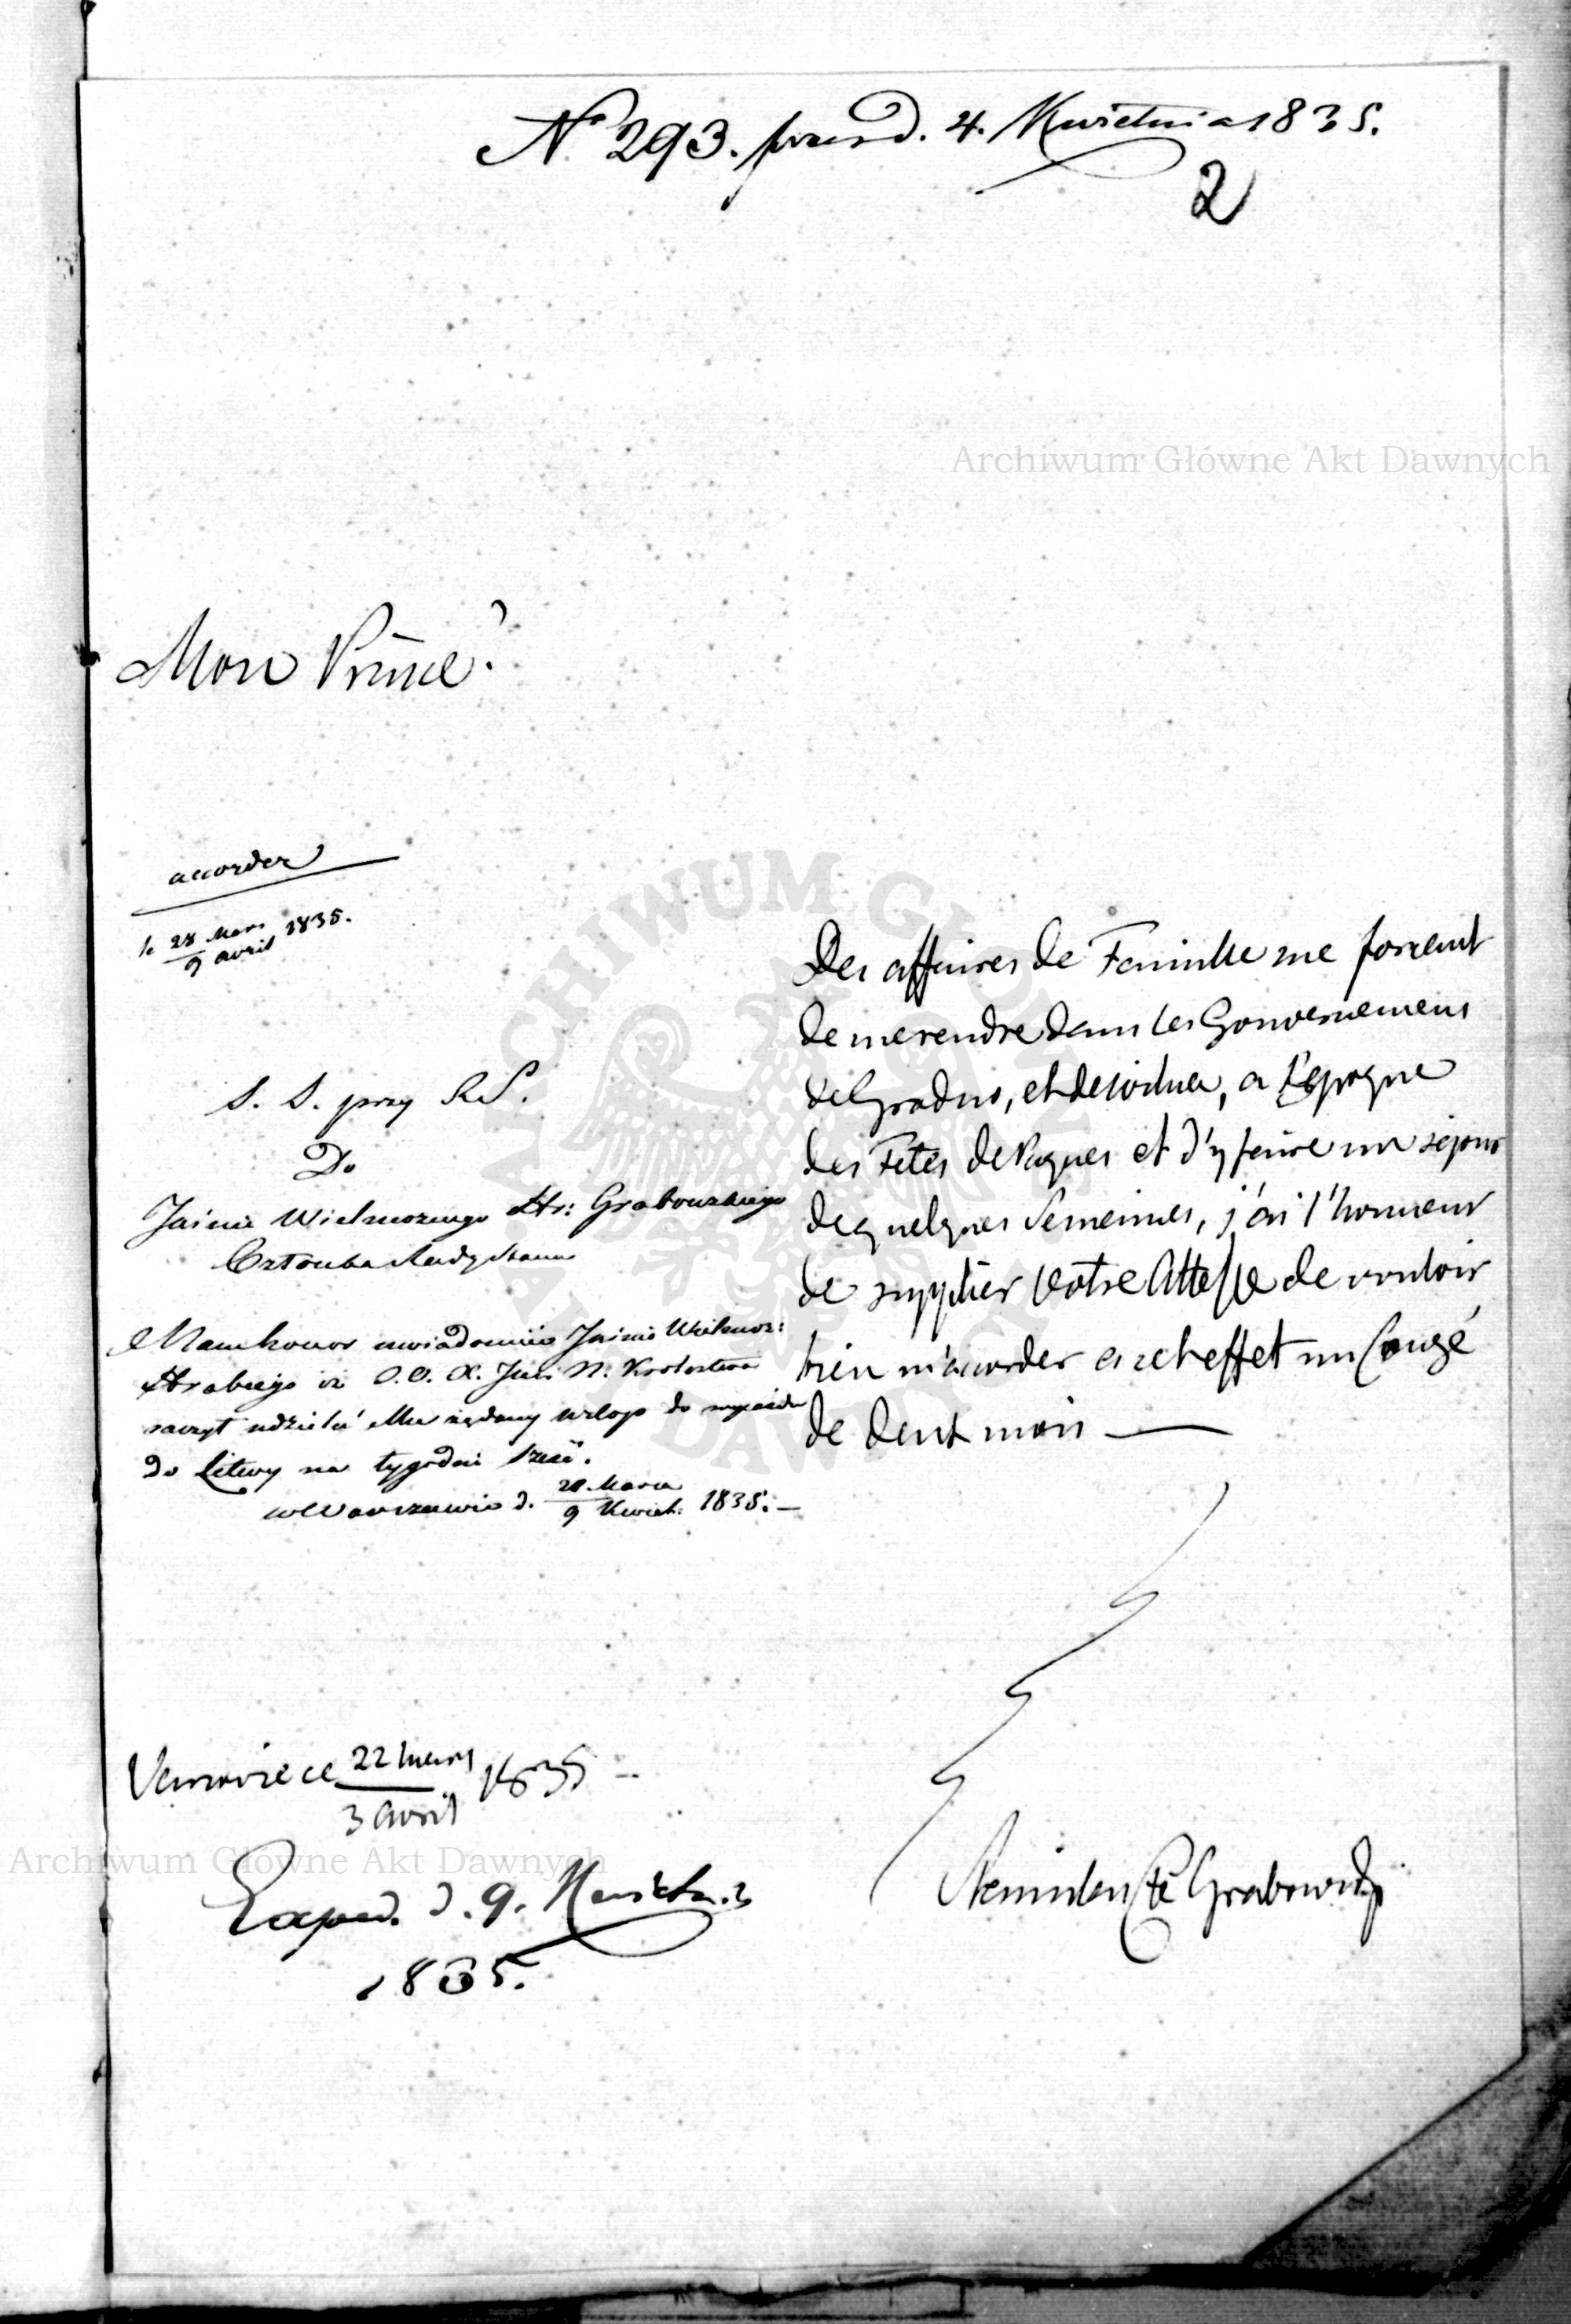 No 293. prez d. 4. Kwietnia 1835.
2
Archiwum Główne Akt Dawnych
Mon Prince!
accorder
le 28 Mars / 9 avril 1835.
S. S. przy R S.
Do
Jaśnie Wielmożnego Hr: Grabowskiego
Członka Rady Stanu
Mam honor uwiadomić Jaśnie Wielmoż:
Hrabiego iż J. O. X. Jmć N. Królestwa
raczył udzielić Mu żądany urlop do wyjazdu
do Litwy na tygodni sześć.
w Warszawie d. 28. Marca / 9 Kwiet: 1835. —
Des affaires de Famille me forcent
de me rendre dans les Gouvernemens
de Grodno, et de Wilna, a l'Epoque
des Fetes de Paques et d'y faire un séjour
de quelques Semaines, j'ai l'honneur
de supplier Votre Altesse de vouloir
bien m'accorder a cet effet un Congé
de deux mois —
Varsovie ce 22 mars / 3 avril 1835 —
Archiwum Główne Akt Dawnych
Stanislas Cte Grabowski
Exped. d. 9. Kwietnia
1835.
ARCHIWUM GŁÓWNE
AKT DAWNYCH